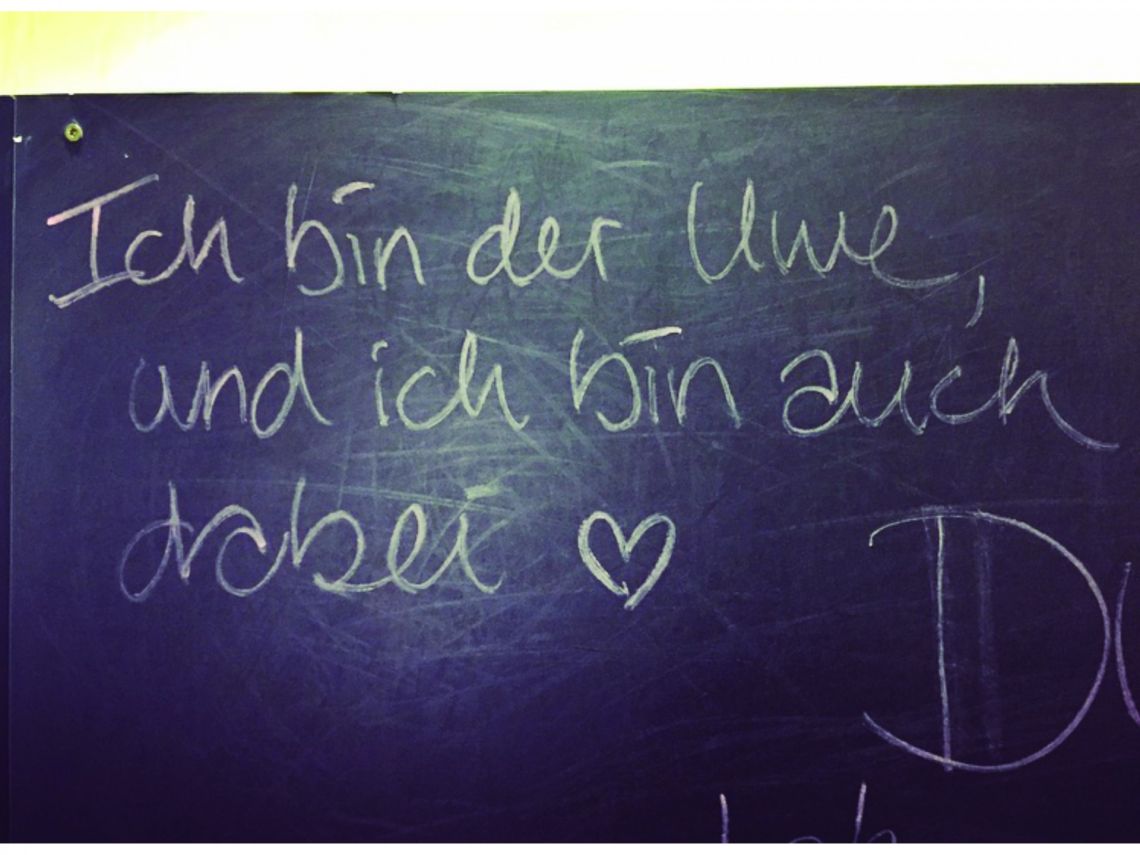 Ich bin der Uwe,
und ich bin auch
dabei ♡